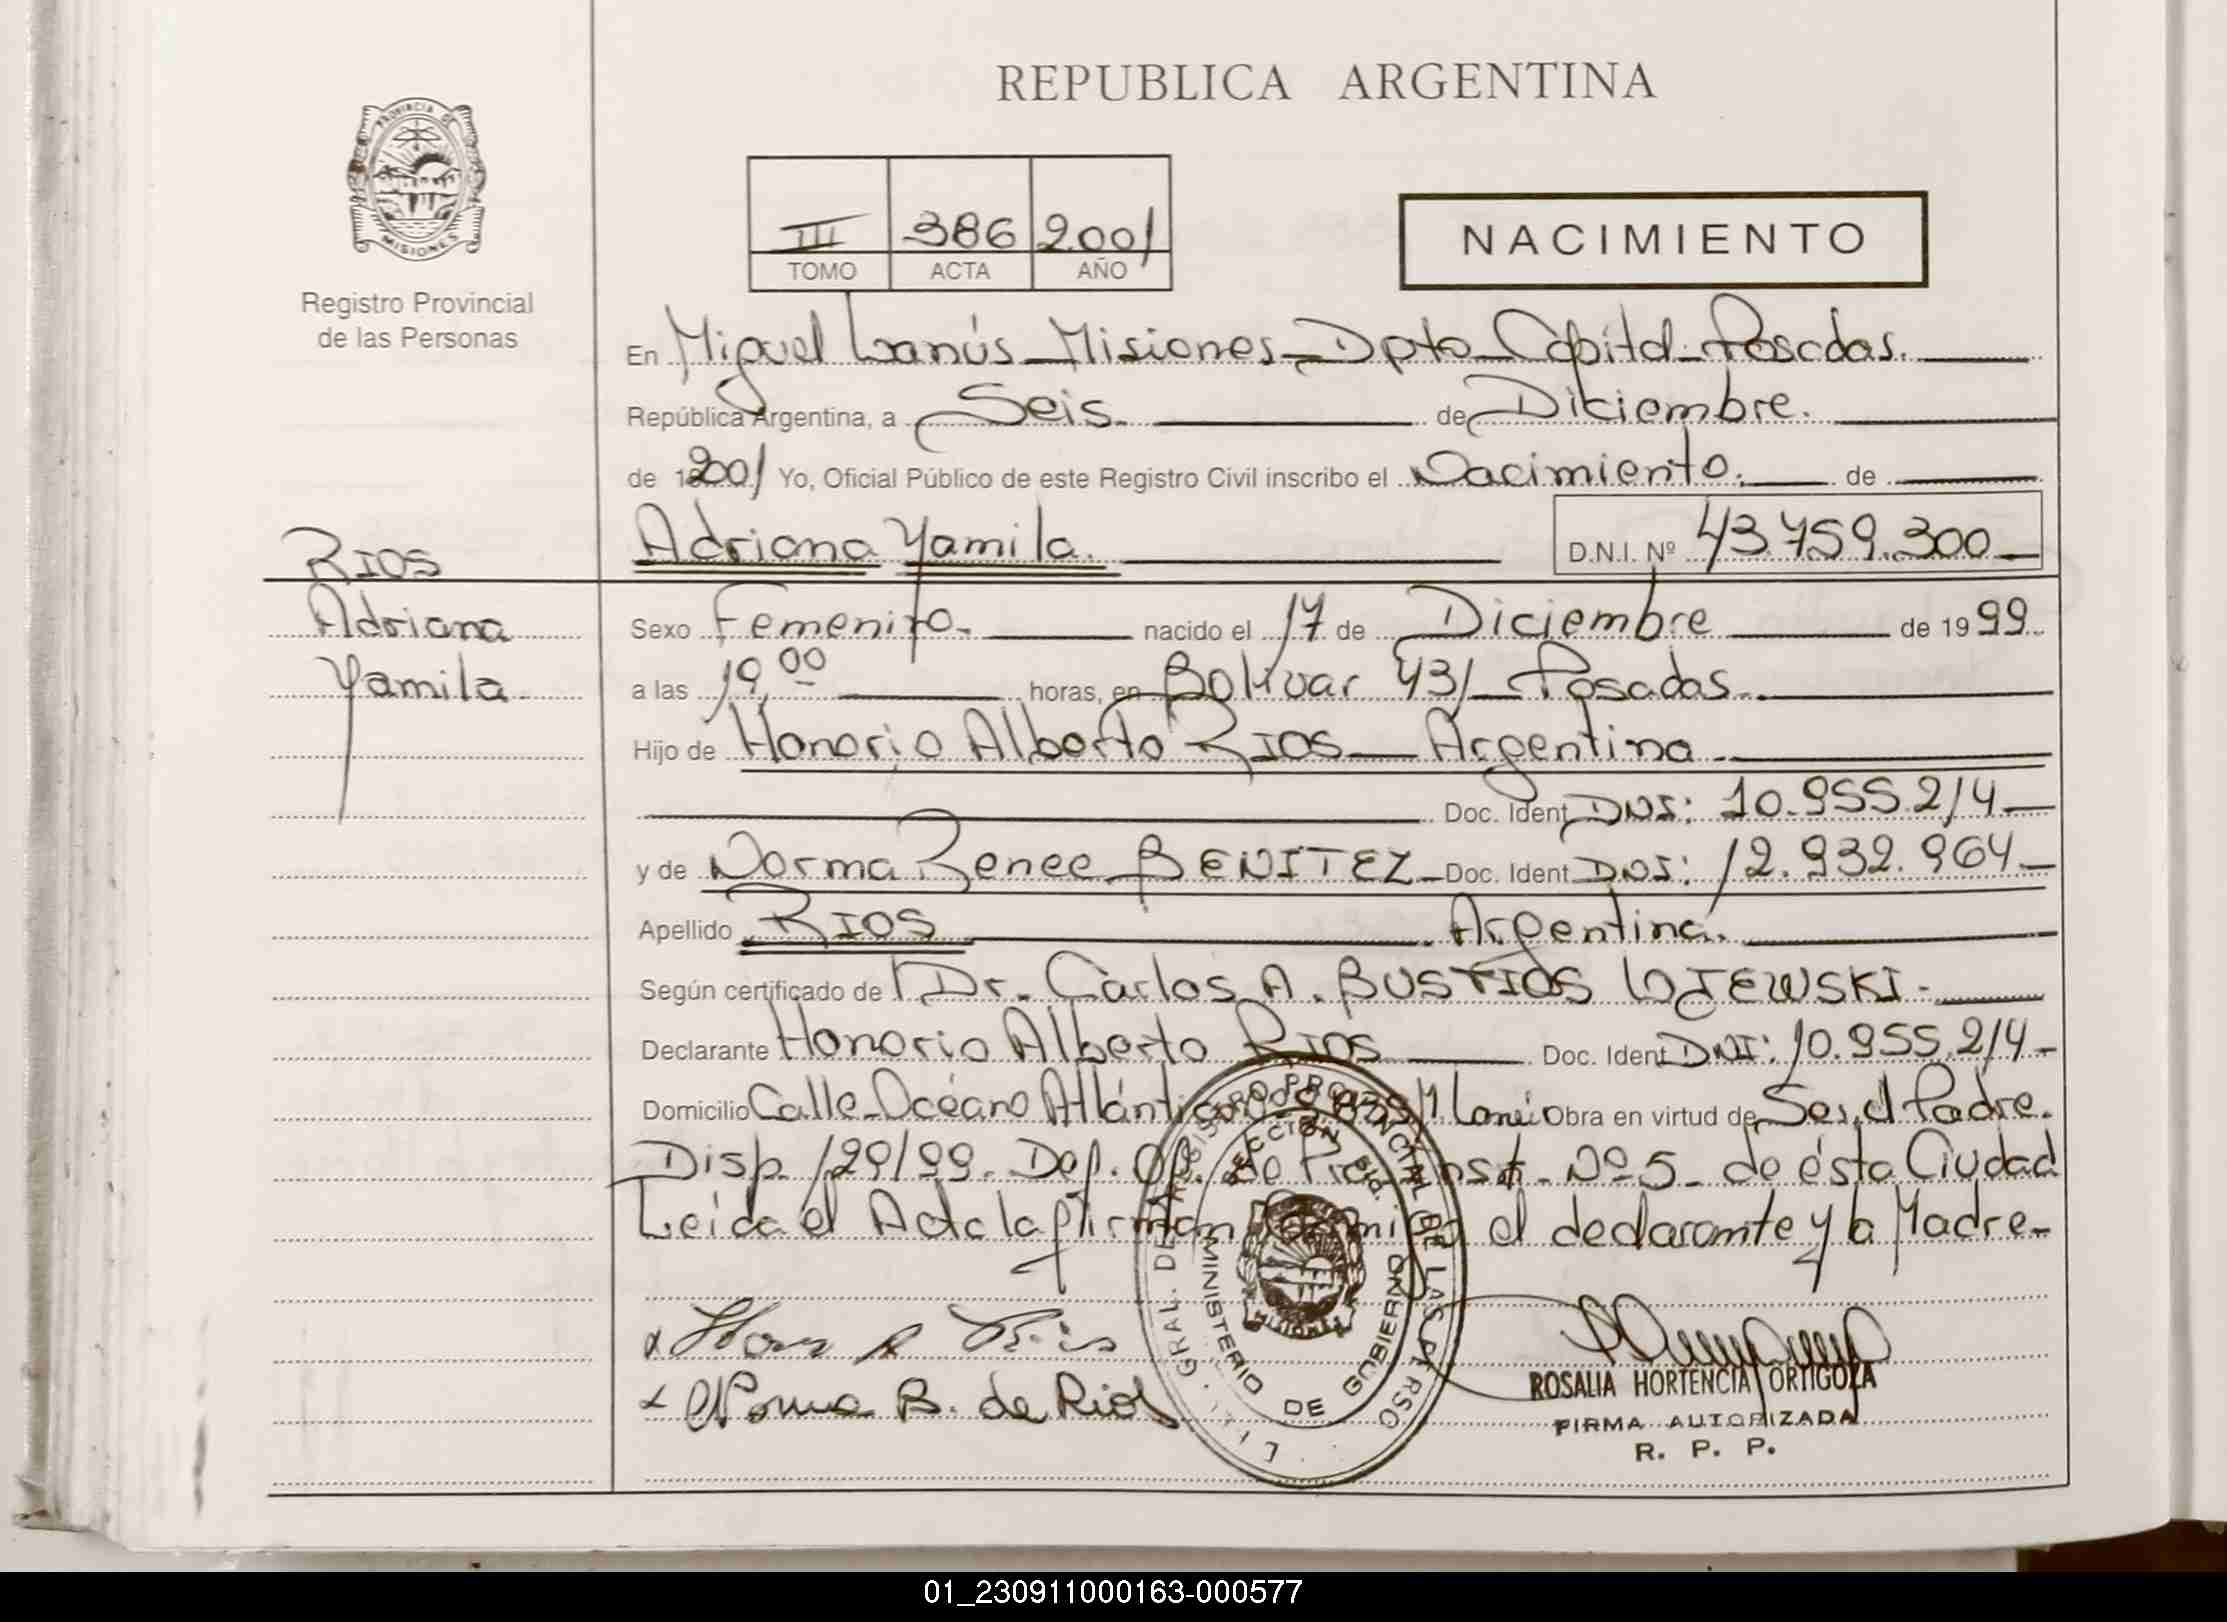 REPUBLICA ARGENTINA
PROVINCIA DE
MISIONES
Registro Provincial
de las Personas
III 386 2001
TOMO ACTA AÑO
NACIMIENTO
En Miguel Lanús - Misiones - Dpto Capital - Posadas.
República Argentina, a Seis. de Diciembre.
de 2001 Yo, Oficial Público de este Registro Civil inscribo el Nacimiento. de
RIOS
Adriana
Yamila
Adriana Yamila. D.N.I. Nº 43.759.300
Sexo Femenino. nacido el 17 de Diciembre de 1999
a las 19,00 horas, en Bolívar 431 Posadas.
Hijo de Honorio Alberto RIOS - Argentina
Doc. Ident DNI: 10.955.214
y de Norma Renee BENITEZ Doc. Ident DNI: 12.932.964
Apellido RIOS Argentina.
Según certificado de Dr. Carlos A. BUSTIOS LOJEWSKI.
Declarante Honorio Alberto RIOS Doc. Ident DNI: 10.955.214
Domicilio Calle Océano Atlántico M. Lanús Obra en virtud de Ser el Padre.
Disp. 129/99. Dep. de Inst. Nº 5 - de ésta Ciudad
Leída el Acta la firman conmigo el declarante y la Madre
Hon A Rios
Norma B. de Rios
MINISTERIO DE GOBIERNO
ROSALIA HORTENCIA ORTIGOZA
FIRMA AUTORIZADA
R. P. P.
01_230911000163-000577